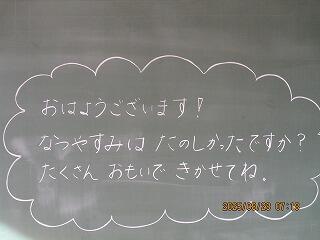 おはようございます！
なつやすみは たのしかったですか？
たくさん おもいで きかせてね。